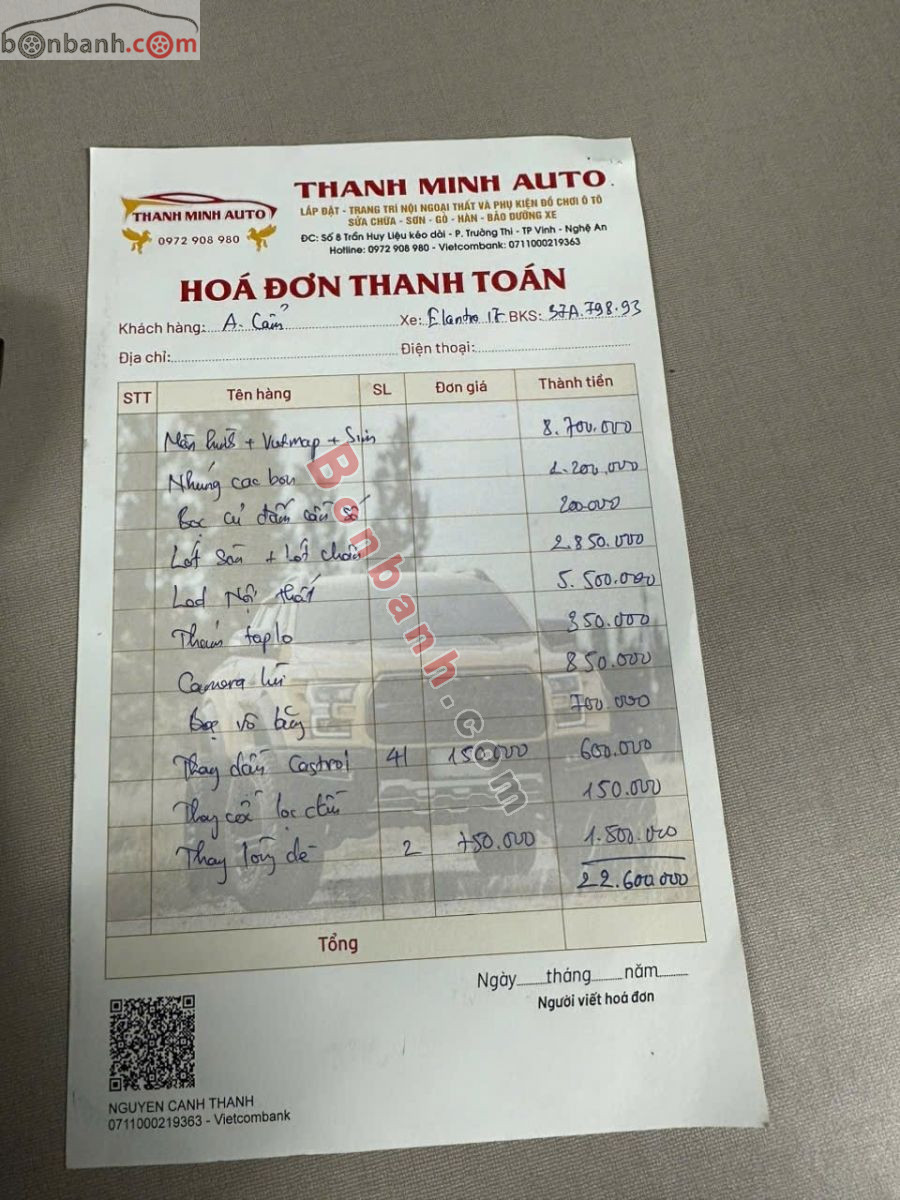 bonbanh.com
THANH MINH AUTO
0972 908 980
THANH MINH AUTO
LẮP ĐẶT - TRANG TRÍ NỘI NGOẠI THẤT VÀ PHỤ KIỆN ĐỒ CHƠI Ô TÔ
SỬA CHỮA - SƠN - GÒ - HÀN - BẢO DƯỠNG XE
ĐC: Số 8 Trần Huy Liệu kéo dài - P. Trường Thi - TP Vinh - Nghệ An
Hotline: 0972 908 980 - Vietcombank: 0711000219363
HOÁ ĐƠN THANH TOÁN
Khách hàng: A. Cẩn Xe: Elantra 17 BKS: 37A.798.93
Địa chỉ: Điện thoại:
STT Tên hàng SL Đơn giá Thành tiền
Màn hình + Vietmap + Sim 8.700.000
Nhúng cac bon 1.200.000
Bọc củ đấm cần số 200.000
Lót sàn + Lót chân 2.850.000
Led Nội thất 5.500.000
Thảm taplo 350.000
Camera lùi 850.000
Bọc vô lăng 700.000
Thay dầu Castrol 4l 150.000 600.000
Thay cốc lọc dầu 150.000
Thay 2 750.000 1.500.000
22.600.000
Tổng
Ngày tháng năm
Người viết hoá đơn
NGUYEN CANH THANH
0711000219363 - Vietcombank
Bonbanh.com